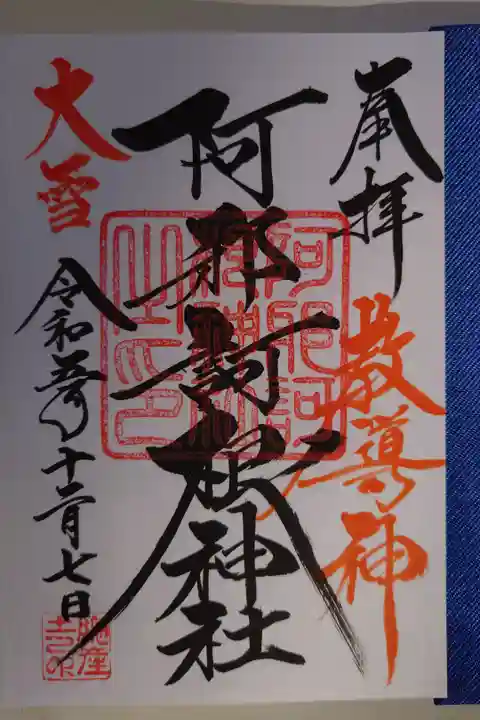 奉拝
教導神
阿邪訶根神社
大雪
令和五年十二月七日